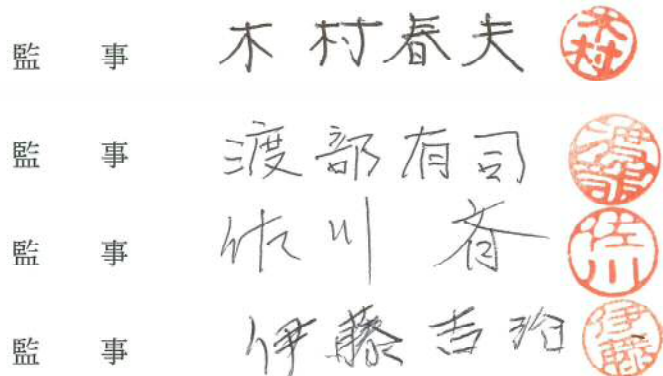 監 事 木村春夫 木村
監 事 渡部有司 渡部
監 事 佐川 斉 佐川
監 事 伊藤吉 伊藤